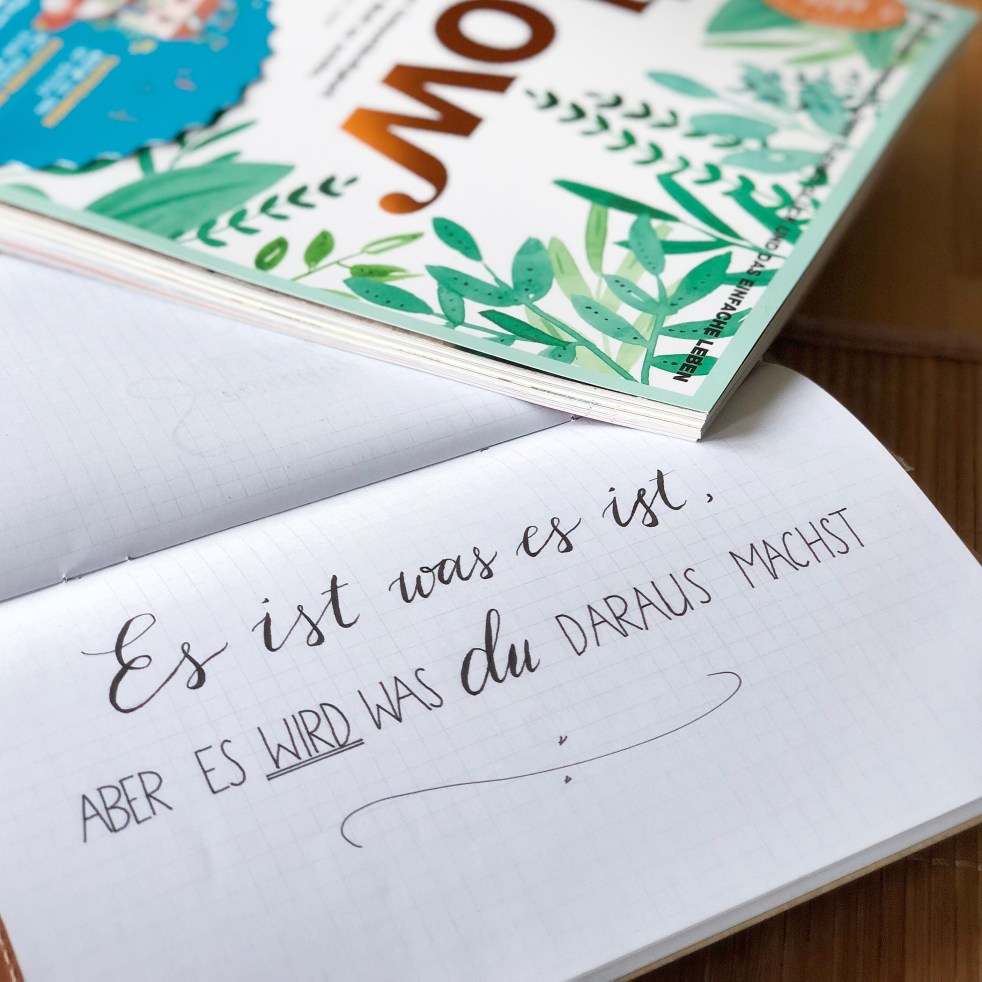 UND DAS EINFACHE LEBEN
Es ist was es ist,
ABER ES WIRD WAS du DARAUS MACHST